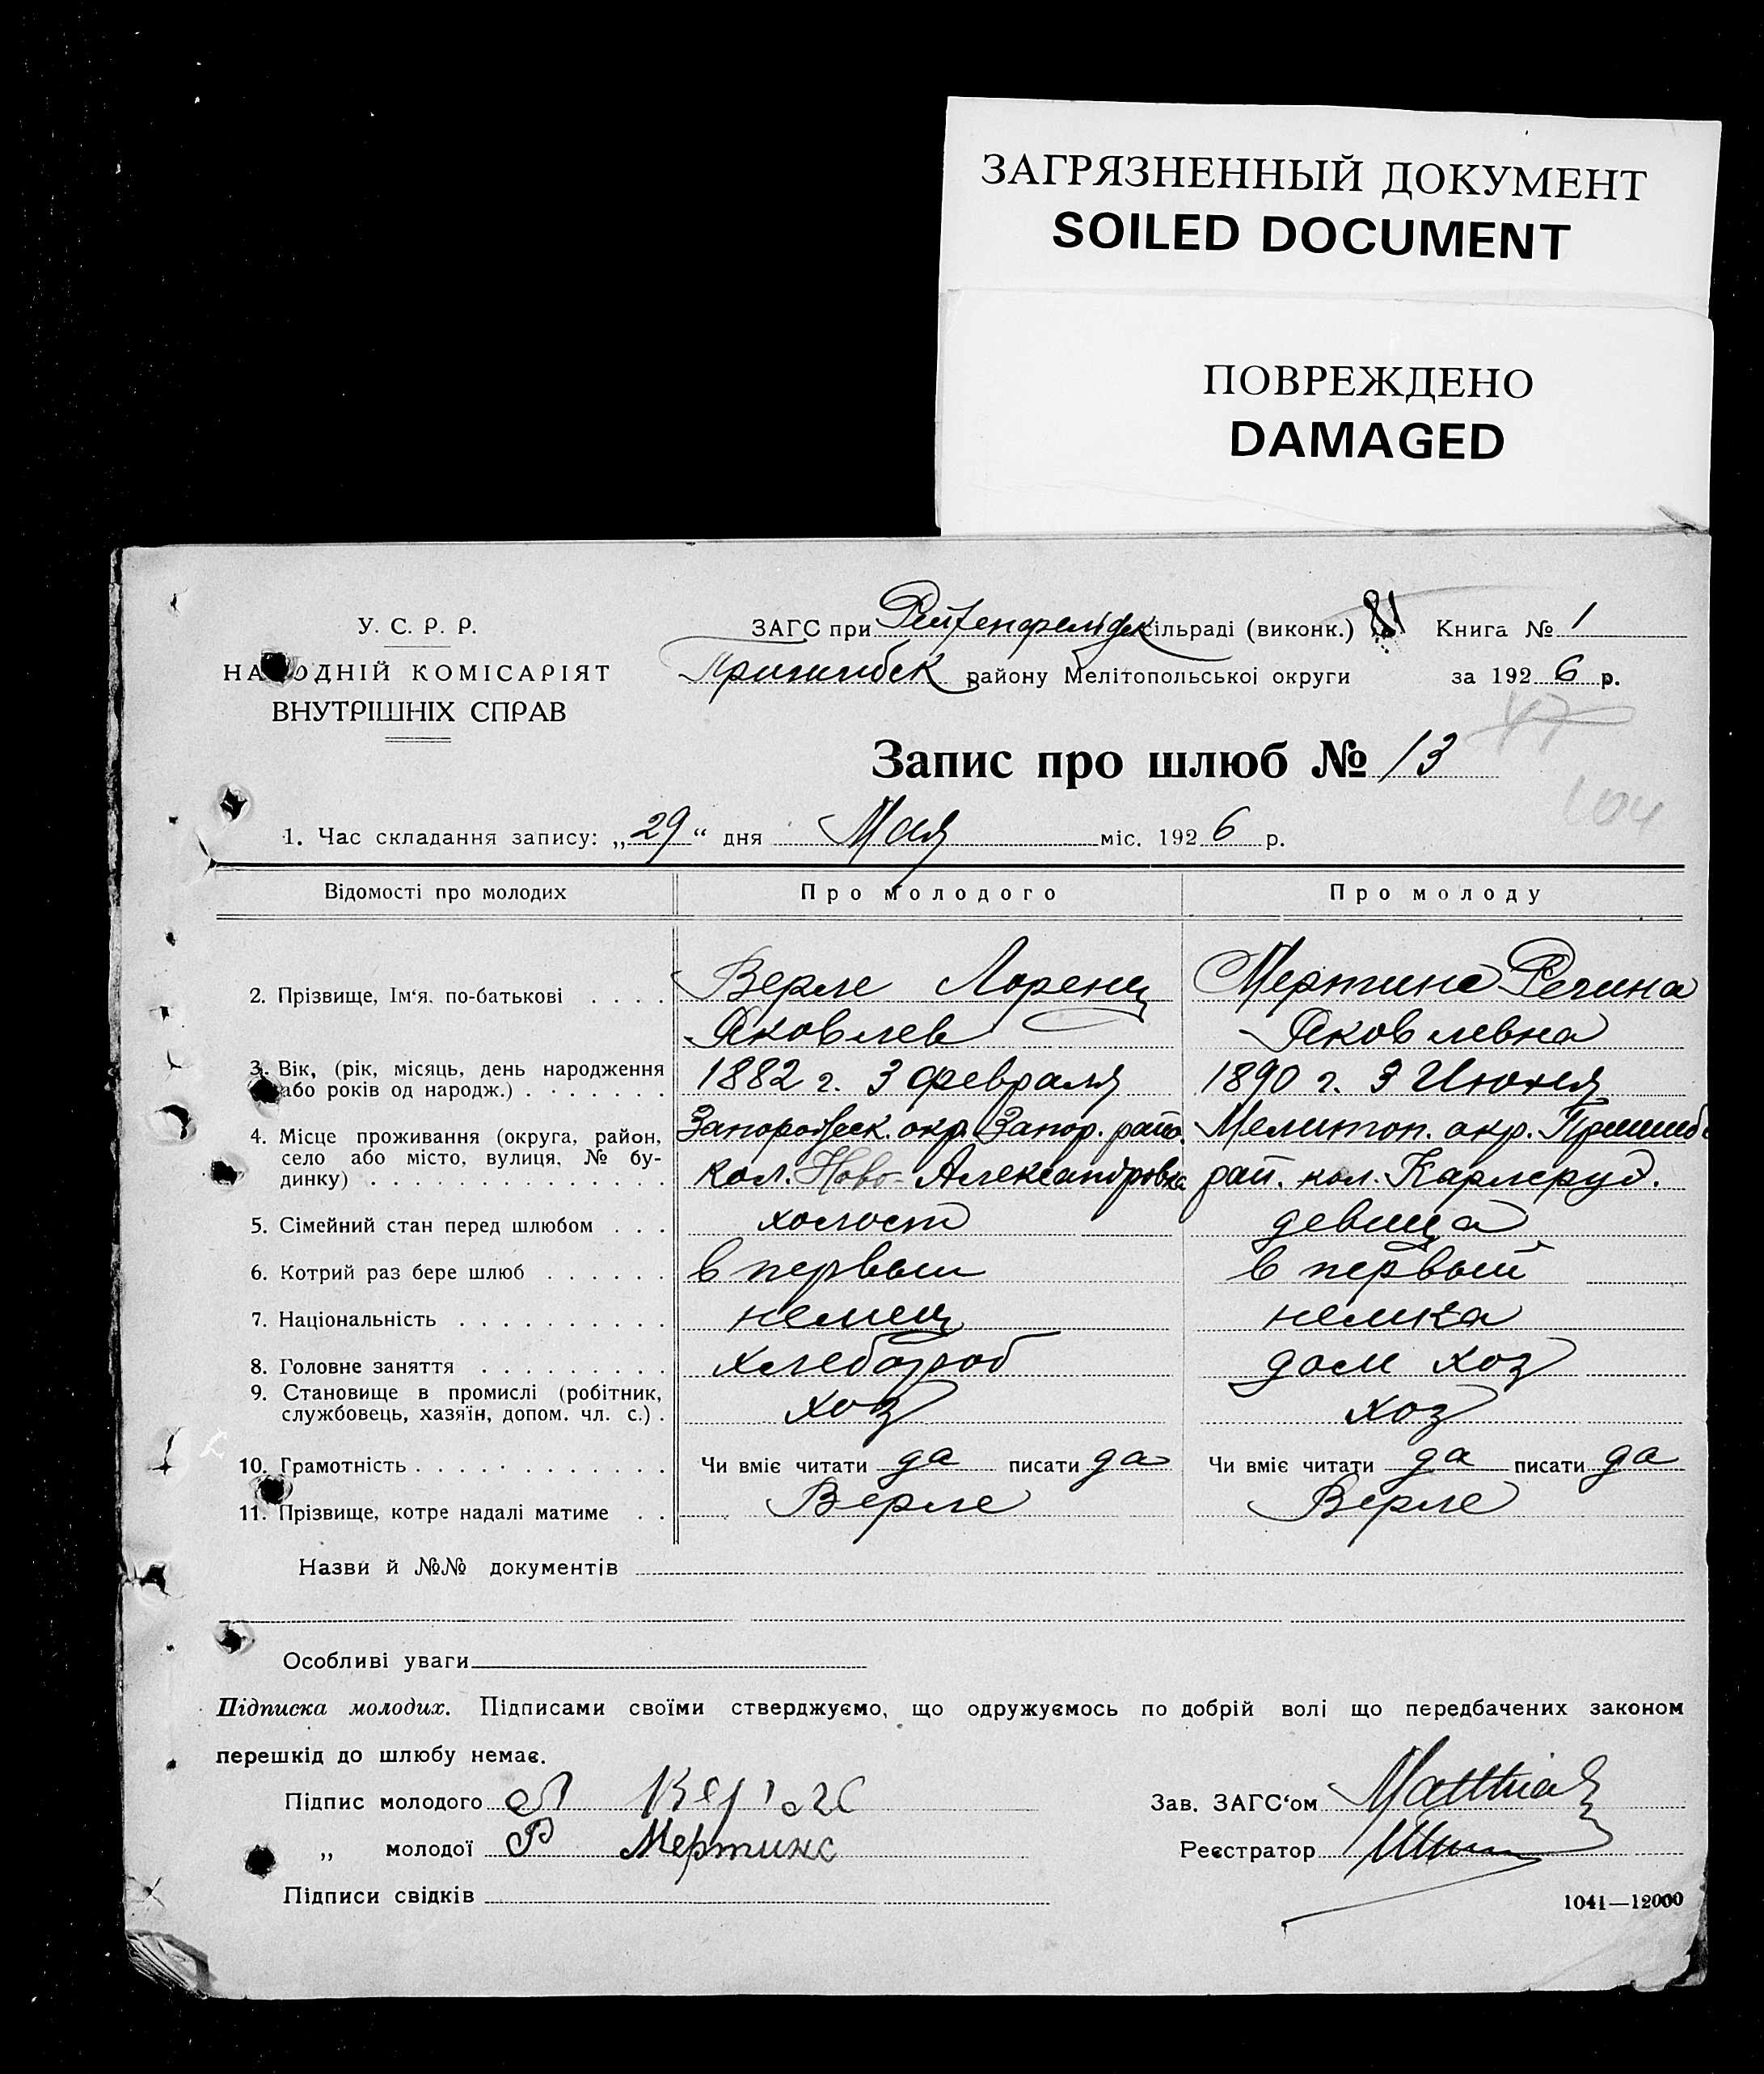 ЗАГРЯЗНЕННЫЙ ДОКУМЕНТ
SOILED DOCUMENT
ПОВРЕЖДЕНО
DAMAGED
У. С. Р. Р.
НАРОДНІЙ КОМІСАРІЯТ
ВНУТРІШНІХ СПРАВ
ЗАГС при Рейхенфельдск сільраді (виконк.) 81 Книга № 1
Пришибск району Мелітопольської округи за 1926 р.
47
Запис про шлюб № 13
104
1. Час складання запису: „29“ дня Мая міс. 1926 р.
Відомості про молодих Про молодого Про молоду
2. Прізвище, Ім‘я, по-батькові . . . . Верле Лоренц Мертинс Регина
Яковлев Яковлевна
3. Вік, (рік, місяць, день народження або років од народж.) . . . . . . . 1882 г. 3 февраля 1890 г. 3 Июня
4. Місце проживання (округа, район, Запорожск. окр. Запор. райо. Мелитоп. окр. Пришиб
село або місто, вулиця, № бу-
динку) . . . . . . . . . . . . . . кол. Ново-Александровка рай. кол. Карлеруэ.
5. Сімейний стан перед шлюбом . . . холост девица
6. Котрий раз бере шлюб . . . . . . в первый в первый
7. Національність . . . . . . . . . . немец немка
8. Головне заняття . . . . . . . . . хлебороб дом хоз
9. Становище в промислі (робітник,
службовець, хазяїн, допом. чл. с.) . хоз хоз
10. Грамотність . . . . . . . . . . . . Чи вміє читати да писати да Чи вміє читати да писати да
11. Прізвище, котре надалі матиме . . Верле Верле
Назви й №№ документів
Особливі уваги
Підписка молодих. Підписами своїми стверджуємо, що одружуємось по добрій волі що передбачених законом
перешкід до шлюбу немає.
Підпис молодого Л Зав. ЗАГС‘ом Matthias
„ молодої Р Мертинс Реєстратор
Підписи свідків
1041—12000